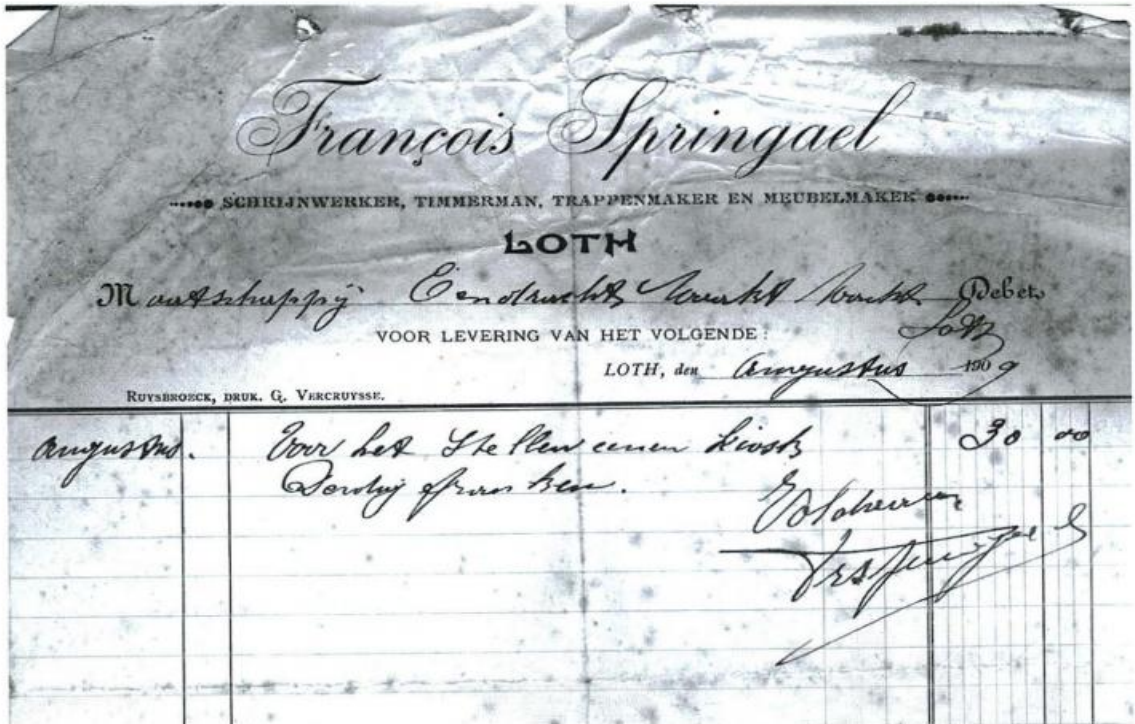 François Springael
SCHRIJNWERKER, TIMMERMAN, TRAPPENMAKER EN MEUBELMAKER
LOTH
Maatschappij Eendracht Maakt Macht Debet
Loth
VOOR LEVERING VAN HET VOLGENDE:
LOTH, den Augustus 1909
RUYSBROECK, DRUK. G. VERCRUYSSE.
Augustus. Voor het Stellen eenen kiosk 30 00
Dertig franken.
Voldaan
Frs Springael